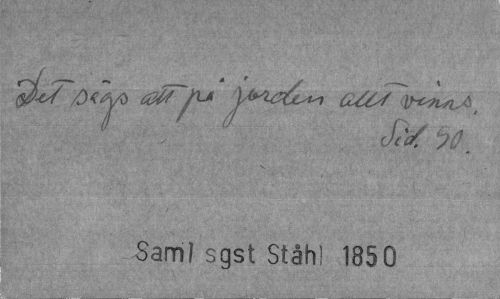 Det sägs att på jorden allt vinns.
Sid. 90.
Saml sgst Ståhl 1850